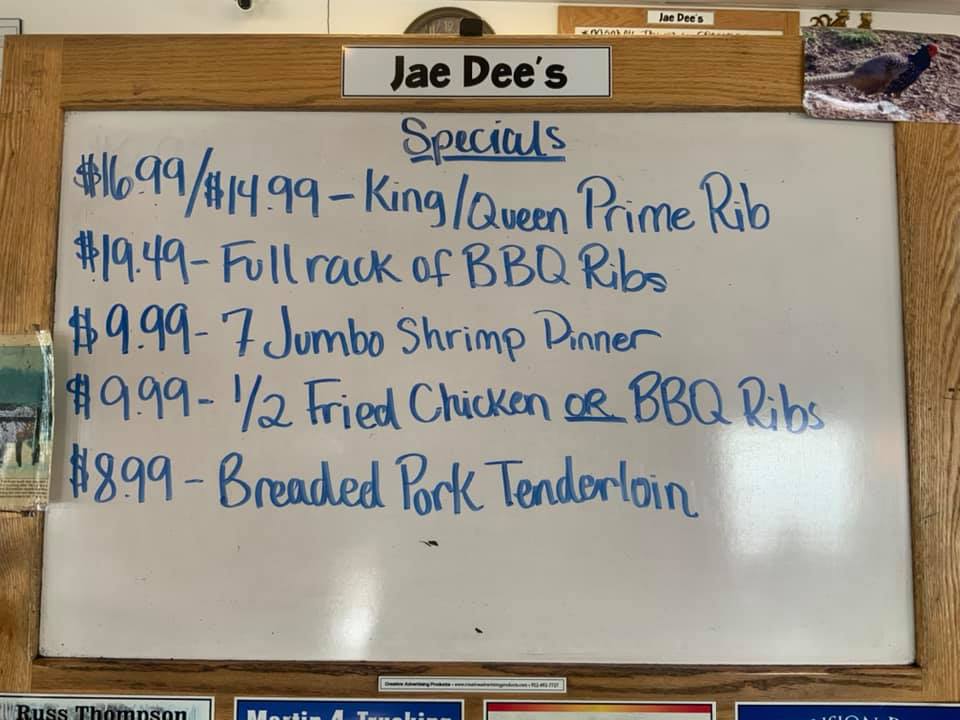 Jae Dee's
Jae Dee's
Specials
$16.99/$14.99 - King/Queen Prime Rib
$19.49 - Full rack of BBQ Ribs
$9.99 - 7 Jumbo Shrimp Dinner
$9.99 - 1/2 Fried Chicken OR BBQ Ribs
$8.99 - Breaded Pork Tenderloin
Creative Advertising Products
Russ Thompson
Martin 4 Trucking